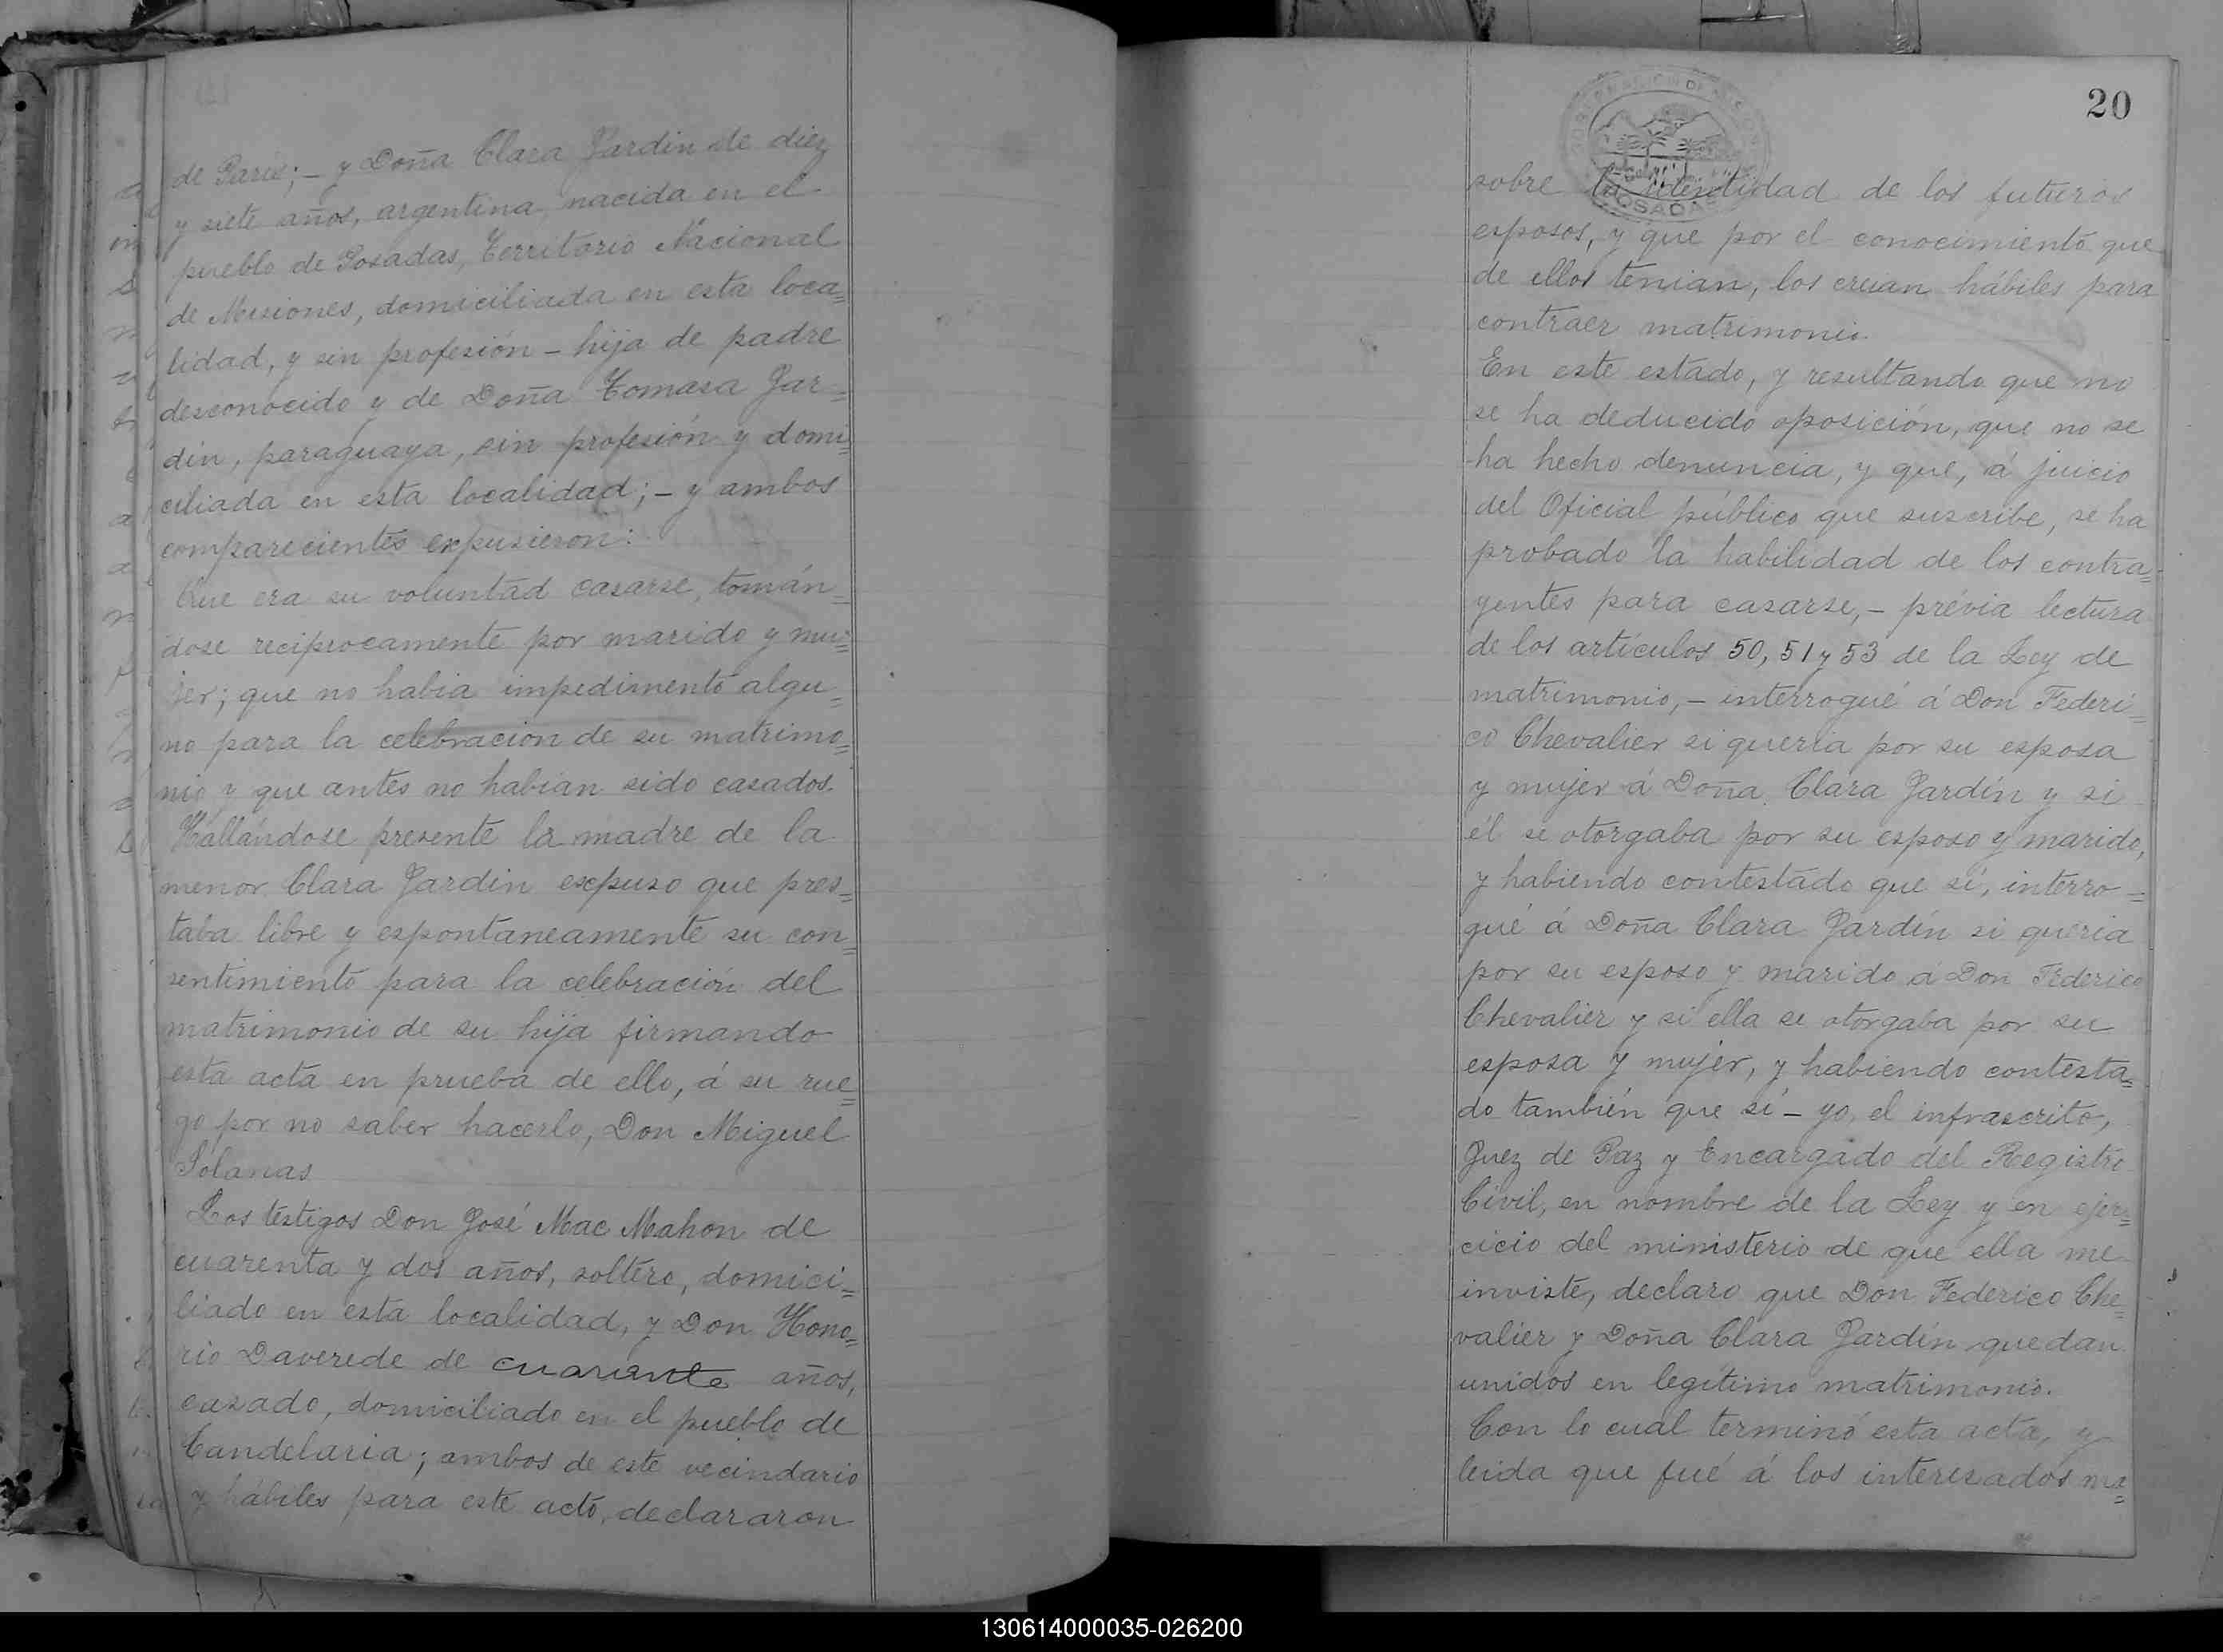 de Paris; — y Doña Clara Jardin de diez
y siete años, argentina, nacida en el
pueblo de Posadas, Territorio Nacional
de Misiones, domiciliada en esta loca=
lidad, y sin profesión — hija de padre
desconocido y de Doña Tomasa Jar=
din, paraguaya, sin profesión y domi=
ciliada en esta localidad; — y ambos
comparecientes expusieron:
Que era su voluntad casarse, tomán=
dose reciprocamente por marido y mu=
jer; que no habia impedimento algu=
no para la celebracion de su matrimo=
nio y que antes no habian sido casados.
Hallándose presente la madre de la
menor Clara Jardin expuso que pres=
taba libre y espontaneamente su con=
sentimiento para la celebración del
matrimonio de su hija firmando
esta acta en prueba de ello, á su rue=
go por no saber hacerlo, Don Miguel
Solanas
Los testigos Don José Mac Mahon de
cuarenta y dos años, soltero, domici=
liado en esta localidad, y Don Hono=
rio Daverede de cuarenta años,
casado, domiciliado en el pueblo de
Candelaria; ambos de este vecindario
y hábiles para este acto, declararon
20
POSADAS
sobre la identidad de los futuros
esposos, y que por el conocimiento que
de ellos tenian, los creian hábiles para
contraer matrimonio.
En este estado, y resultando que no
se ha deducido oposición, que no se
ha hecho denuncia, y que, á juicio
del Oficial público que suscribe, se ha
probado la habilidad de los contra=
yentes para casarse, — prévia lectura
de los artículos 50, 51 y 53 de la Ley de
matrimonio, — interrogué á Don Federi=
co Chevalier si queria por su esposa
y mujer á Doña Clara Jardín y si
él se otorgaba por su esposo y marido,
y habiendo contestado que sí, interro=
gué á Doña Clara Jardín si queria
por su esposo y marido á Don Federico
Chevalier y si ella se otorgaba por su
esposa y mujer, y habiendo contesta=
do también que sí — yo, el infrascrito,
Juez de Paz y Encargado del Registro
Civil, en nombre de la Ley y en ejer=
cicio del ministerio de que ella me
inviste, declaro que Don Federico Che=
valier y Doña Clara Jardín quedan
unidos en legítimo matrimonio.
Con lo cual terminó esta acta, y
leida que fué á los interesados ma=
130614000035-026200